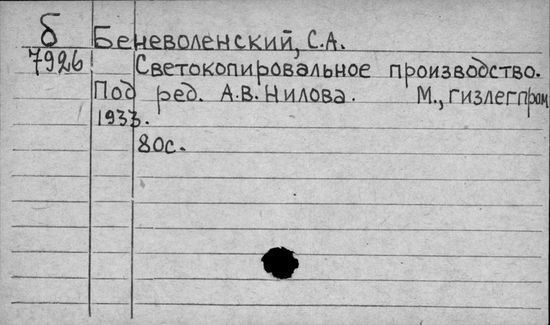 б Беневоленский, С.А.
7926 Светокопировальное производство.
Под ред. А.В. Нилова. М., гизлегпром
1933.
80с.